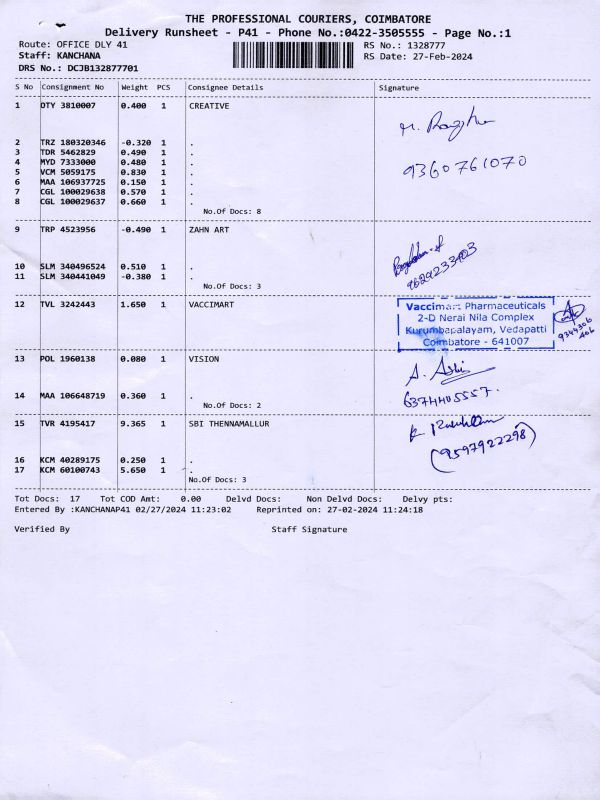 THE PROFESSIONAL COURIERS, COIMBATORE
Delivery Runsheet - P41 - Phone No.:0422-3505555 - Page No.:1
Route: OFFICE DLY 41 RS No.: 1328777
Staff: KANCHANA RS Date: 27-Feb-2024
DRS No.: DCJB132877701
S No Consignment No Weight PCS Consignee Details Signature
1 DTY 3810007 0.400 1 CREATIVE
2 TRZ 180320346 -0.320 1 .
3 TDR 5462829 0.490 1 .
4 MYD 7333000 0.480 1 .
9360761070
5 VCM 5059175 0.830 1 .
6 MAA 106937725 0.150 1 .
7 CGL 100029638 0.570 1 .
8 CGL 100029637 0.660 1 .
No.Of Docs: 8
9 TRP 4523956 -0.490 1 ZAHN ART
10 SLM 340496524 0.510 1 .
11 SLM 340441049 -0.380 1 .
9629233403
No.Of Docs: 3
12 TVL 3242443 1.650 1 VACCIMART
Vaccimart Pharmaceuticals
2-D Nerai Nila Complex
Kurumbapalayam, Vedapatti
Coimbatore - 641007
13 POL 1960138 0.080 1 VISION
14 MAA 106648719 0.360 1 .
6374405557.
No.Of Docs: 2
15 TVR 4195417 9.365 1 SBI THENNAMALLUR
(9597922298)
16 KCM 40289175 0.250 1 .
17 KCM 60100743 5.650 1 .
No.Of Docs: 3
Tot Docs: 17 Tot COD Amt: 0.00 Delvd Docs: Non Delvd Docs: Delvy pts:
Entered By :KANCHANAP41 02/27/2024 11:23:02 Reprinted on: 27-02-2024 11:24:18
Verified By Staff Signature